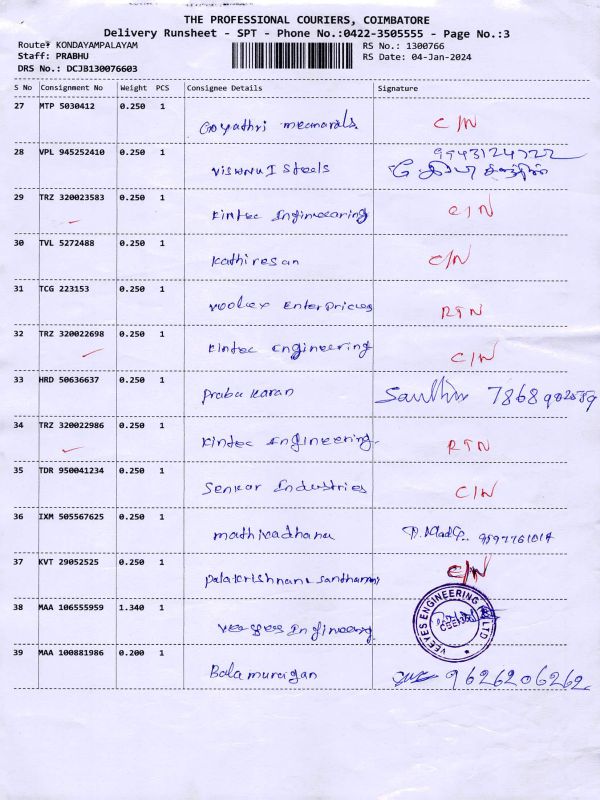 THE PROFESSIONAL COURIERS, COIMBATORE
Delivery Runsheet - SPT - Phone No.:0422-3505555 - Page No.:3
Route: KONDAYAMPALAYAM RS No.: 1300766
Staff: PRABHU RS Date: 04-Jan-2024
DRS No.: DCJB130076603
S No Consignment No Weight PCS Consignee Details Signature
27 MTP 5030412 0.250 1
Goyathri C/N
28 VPL 945252410 0.250 1 9943124722
VISHNU I Steels
29 TRZ 320023583 0.250 1
Kintec Engineering C/N
30 TVL 5272488 0.250 1
Kathiresan C/N
31 TCG 223153 0.250 1
Enterprices RTN
32 TRZ 320022698 0.250 1
Kintec Engineering C/N
33 HRD 50636637 0.250 1
Praba Karan 7868902089
34 TRZ 320022986 0.250 1
Kintec Engineering RTN
35 TDR 950041234 0.250 1
Senkar Industries C/N
36 IXM 505567625 0.250 1
mathivadhana
37 KVT 29052525 0.250 1 C/N
38 MAA 106555959 1.340 1
VEEYES ENGINEERING LTD
39 MAA 100881986 0.200 1
Balamurugan 9626206262